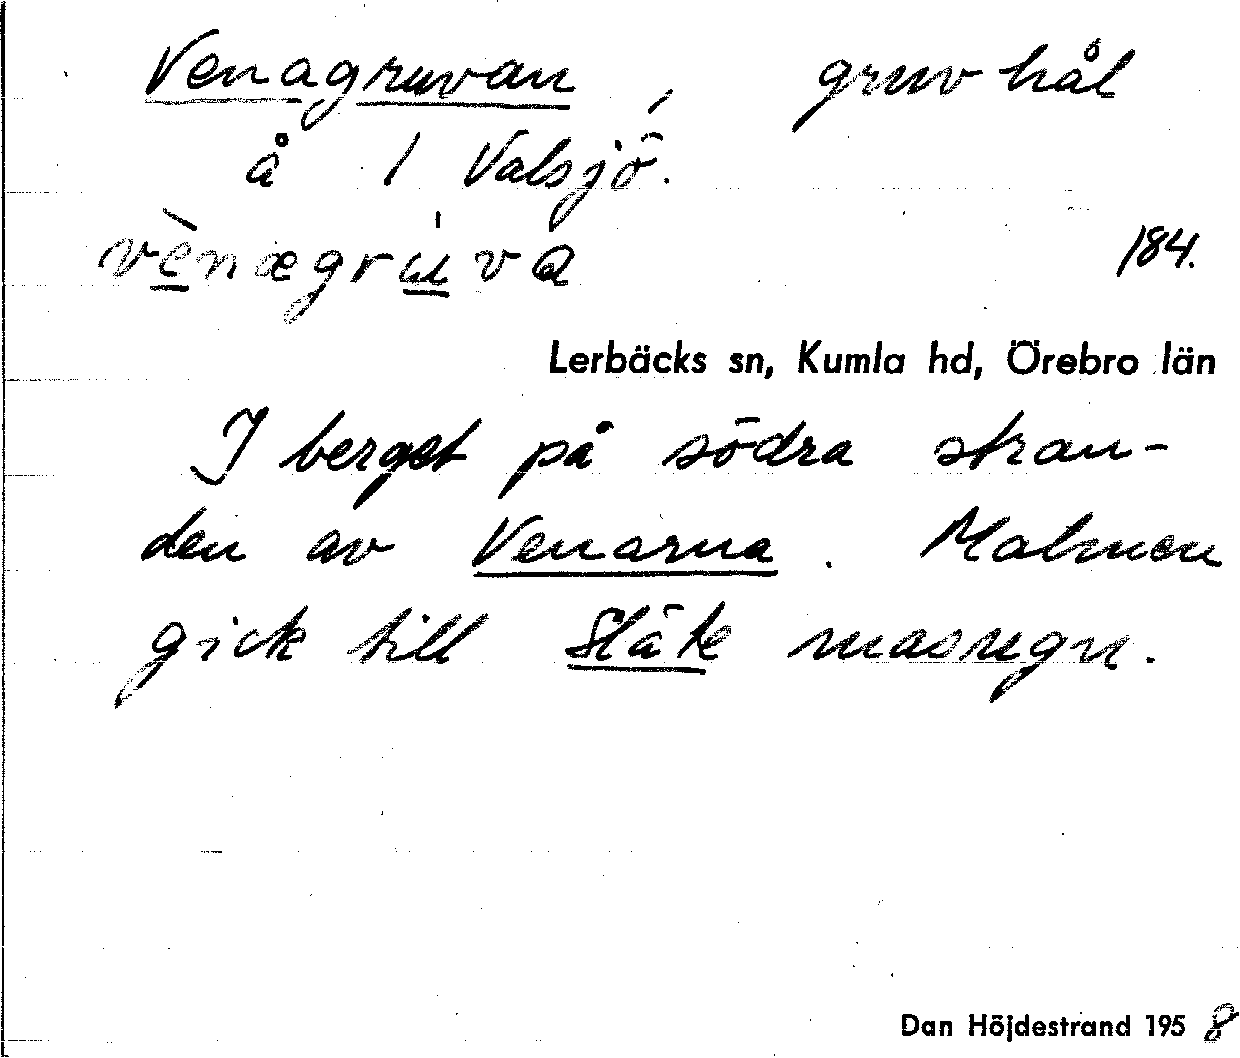 Venagruvan, gruvhål
å 1 Valsjö.
vènægru̍va
184.
Lerbäcks sn, Kumla hd, Örebro län
I berget på södra stran-
den av Venarna. Malmen
gick till Släte masugn.
Dan Höjdestrand 1958